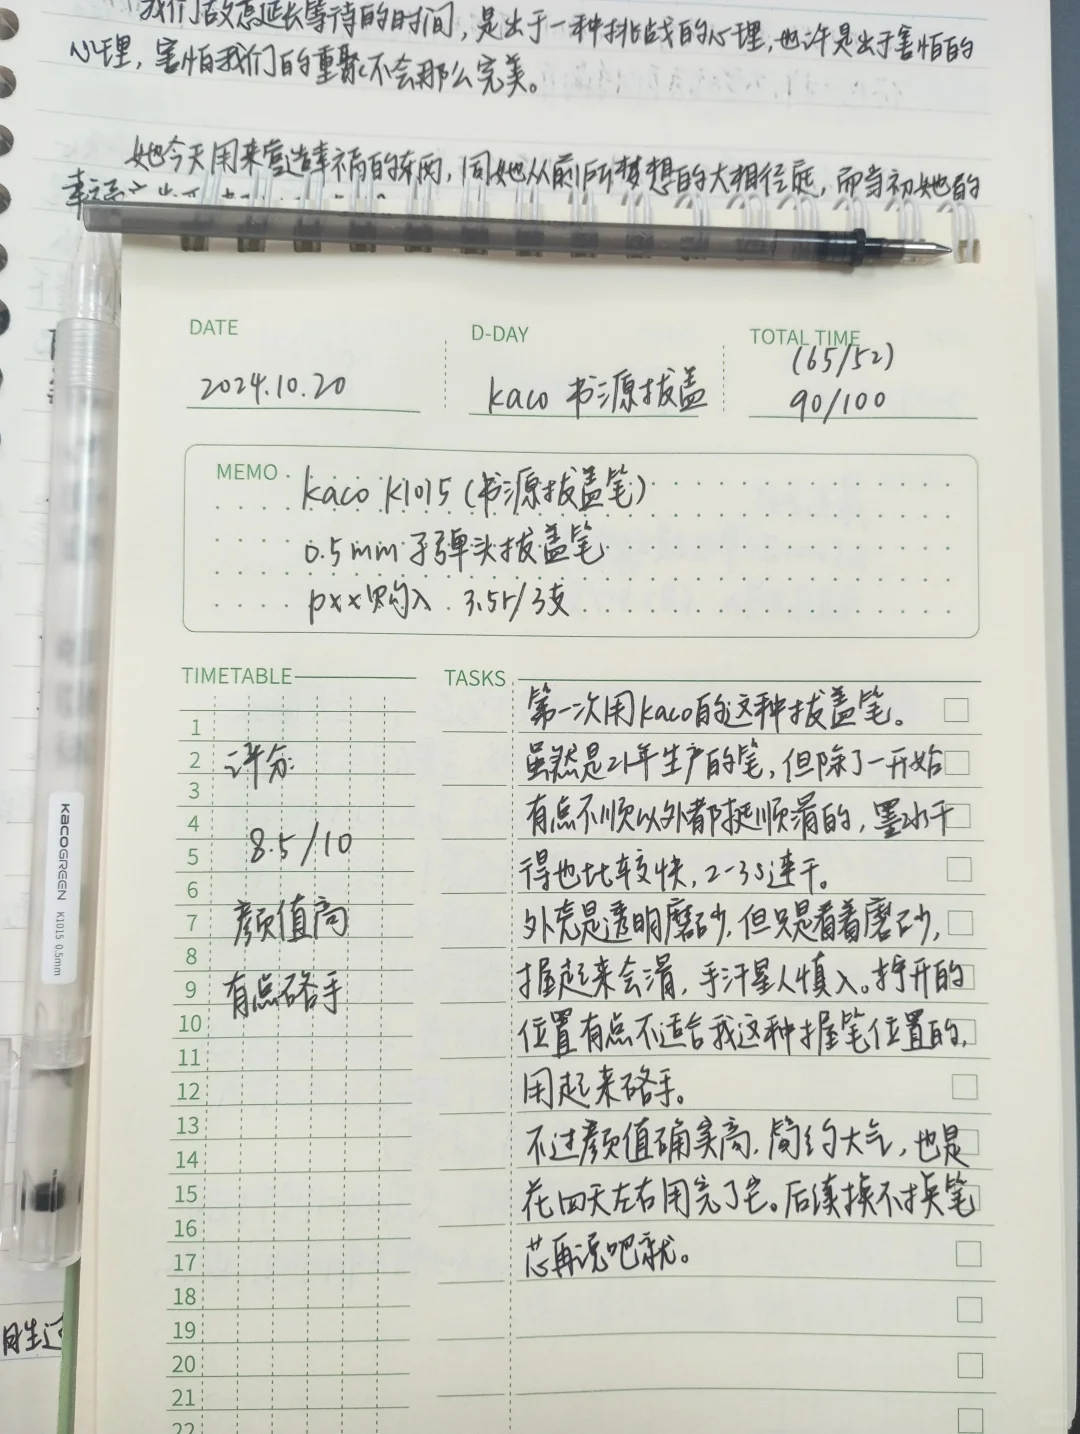 我们故意延长等待的时间，是出于一种挑战的心理，也许是出于害怕的
心理，害怕我们的重聚不会那么完美。
她今天用来营造幸福的东西，同她从前所梦想的大相径庭，而当初她的
DATE
2024.10.20
D-DAY
kaco 书源拔盖
TOTAL TIME
(65/52)
90/100
MEMO
kaco K1015 (书源拔盖笔)
0.5mm 子弹头拔盖笔
pxx购入 3.5r/3支
TIMETABLE
1
2
3
4
5
6
7
8
9
10
11
12
13
14
15
16
17
18
19
20
21
22
评分:
8.5/10
颜值高
有点硌手
TASKS
第一次用kaco的这种拔盖笔。
虽然是21年生产的笔，但除了一开始
有点不顺以外都挺顺滑的，墨水干
得也比较快，2-3s速干。
外壳是透明磨砂，但只是看着磨砂，
握起来会滑，手汗星人慎入。拧开的
位置有点不适合我这种握笔位置的，
用起来硌手。
不过颜值确实高，简约大气，也是
花四天左右用完了它。后续换不换笔
芯再说吧就。
KACOGREEN K1015 0.5mm